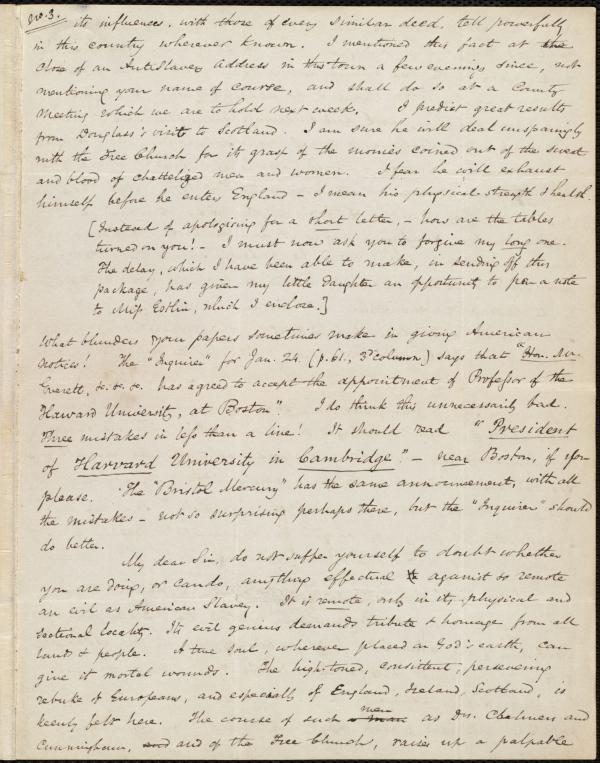 No. 3.
its influences, with those of every similar deed, tell powerfully
in this country wherever known. I mentioned this fact at the
close of an AntiSlavery Address in this town a few evenings since, not
mentioning your name of course, and shall do so at a County
Meeting which we are to hold next week. I predict great results
from Douglass's visit to Scotland. I am sure he will deal unsparingly
with the Free Church for its grasp of the monies coined out of the sweat
and blood of chatteliged men and women. I fear he will exhaust
himself before he enters England – I mean his physical strength & health.
[Instead of apologising for a short letter, – how are the tables
turned on you! – I must now ask you to forgive my long one.
The delay, which I have been able to make, in sending off this
package, has given my little daughter an opportunity to pen a note
to Miss Estlin, which I enclose.]
What blunders your papers sometimes make in giving American
notices! The "Inquirer" for Jan. 24. (p. 61, 3d column) says that "Hon. Mr.
Everett, &c. &c. &c. has agreed to accept the appointment of Professor of the
Haward University, at Boston". I do think this unnecessarily bad.
Three mistakes in less than a line! It should read "President
of Harvard University in Cambridge" – near Boston, if you
please. The "Bristol Mercury" has the same announcement, with all
the mistakes – not so surprising perhaps there, but the "Inquirer" should
do better.
My dear Sir, do not suffer yourself to doubt whether
you are doing, or can do, anything effectual against so remote
an evil as American Slavery. It is remote, only in its physical and
sectional locality. Its evil genius demands tribute & homage from all
lands & people. A true soul, wherever placed on God's earth, can
give it mortal wounds. The high-toned, consistent, persevering
rebuke of Europeans, and especially of England, Ireland, Scotland, is
keenly felt here. The course of such men as Drs. Chalmers and
Cunningham, and and of the Free Church, raises up a palpable